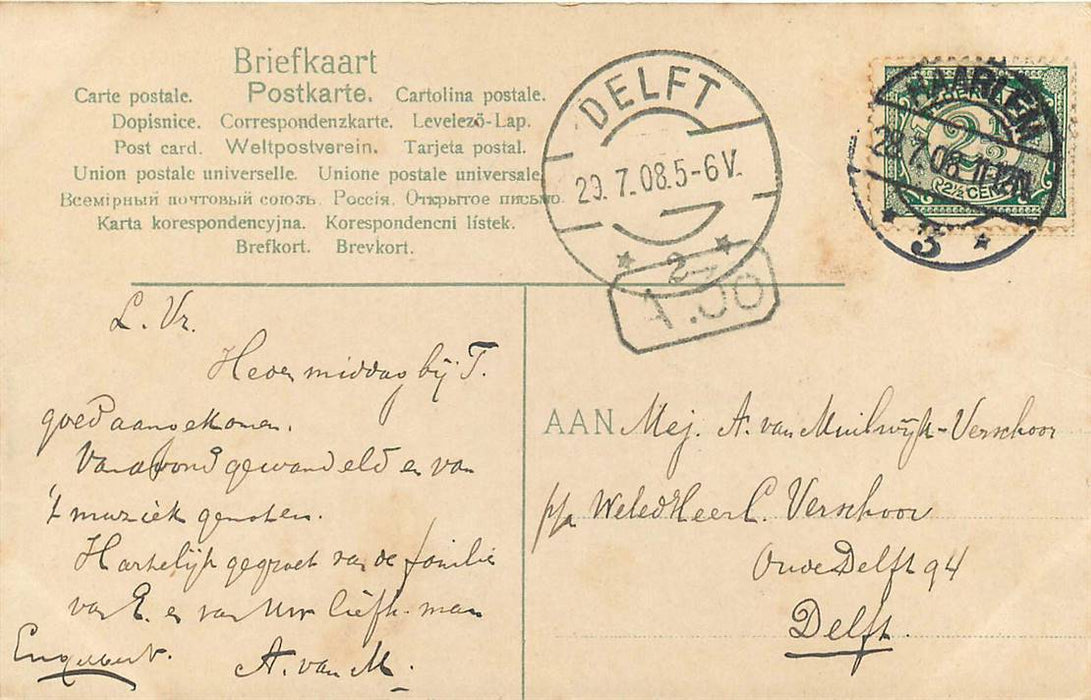 Briefkaart
Carte postale. Postkarte. Cartolina postale.
Dopisnice. Correspondenzkarte. Levelező-Lap.
Post card. Weltpostverein. Tarjeta postal.
Union postale universelle. Unione postale universale.
Всемірный почтовый союзъ. Россія. Открытое письмо.
Karta korespondencyjna. Korespondencni lístek.
Brefkort. Brevkort.
DELFT
29.7.08.5-6V.
2
HAARLEM
28.7.08.11-12N
3
2½ CENT
L. Vr.
Heden middag bij T.
goed aangekomen.
Vanavond gewandeld en van
't muziek genoten.
Hartelijk gegroet van de familie
van E. en van Uw liefh. man
Engelbert. A. van M.
AAN Mej. A. van Muilwijk-Verschoor
p/a Weled Heer C. Verschoor
Oude Delft 94
Delft.